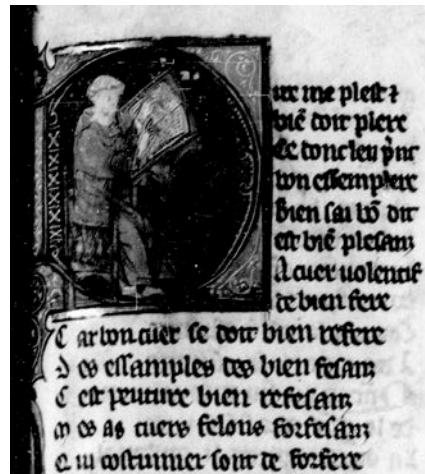 me plest ⁊
biē doit plere
bon essemplere
Bien sai bō dit
est biē plesanz
A cuer uolentif
de bien fere
C ar bon cuer se doit bien refere
D es essamples des bien fesanz
C est penture bien refesanz
M es as cuers felons forfesanz
Q ui costumier sont de forfere